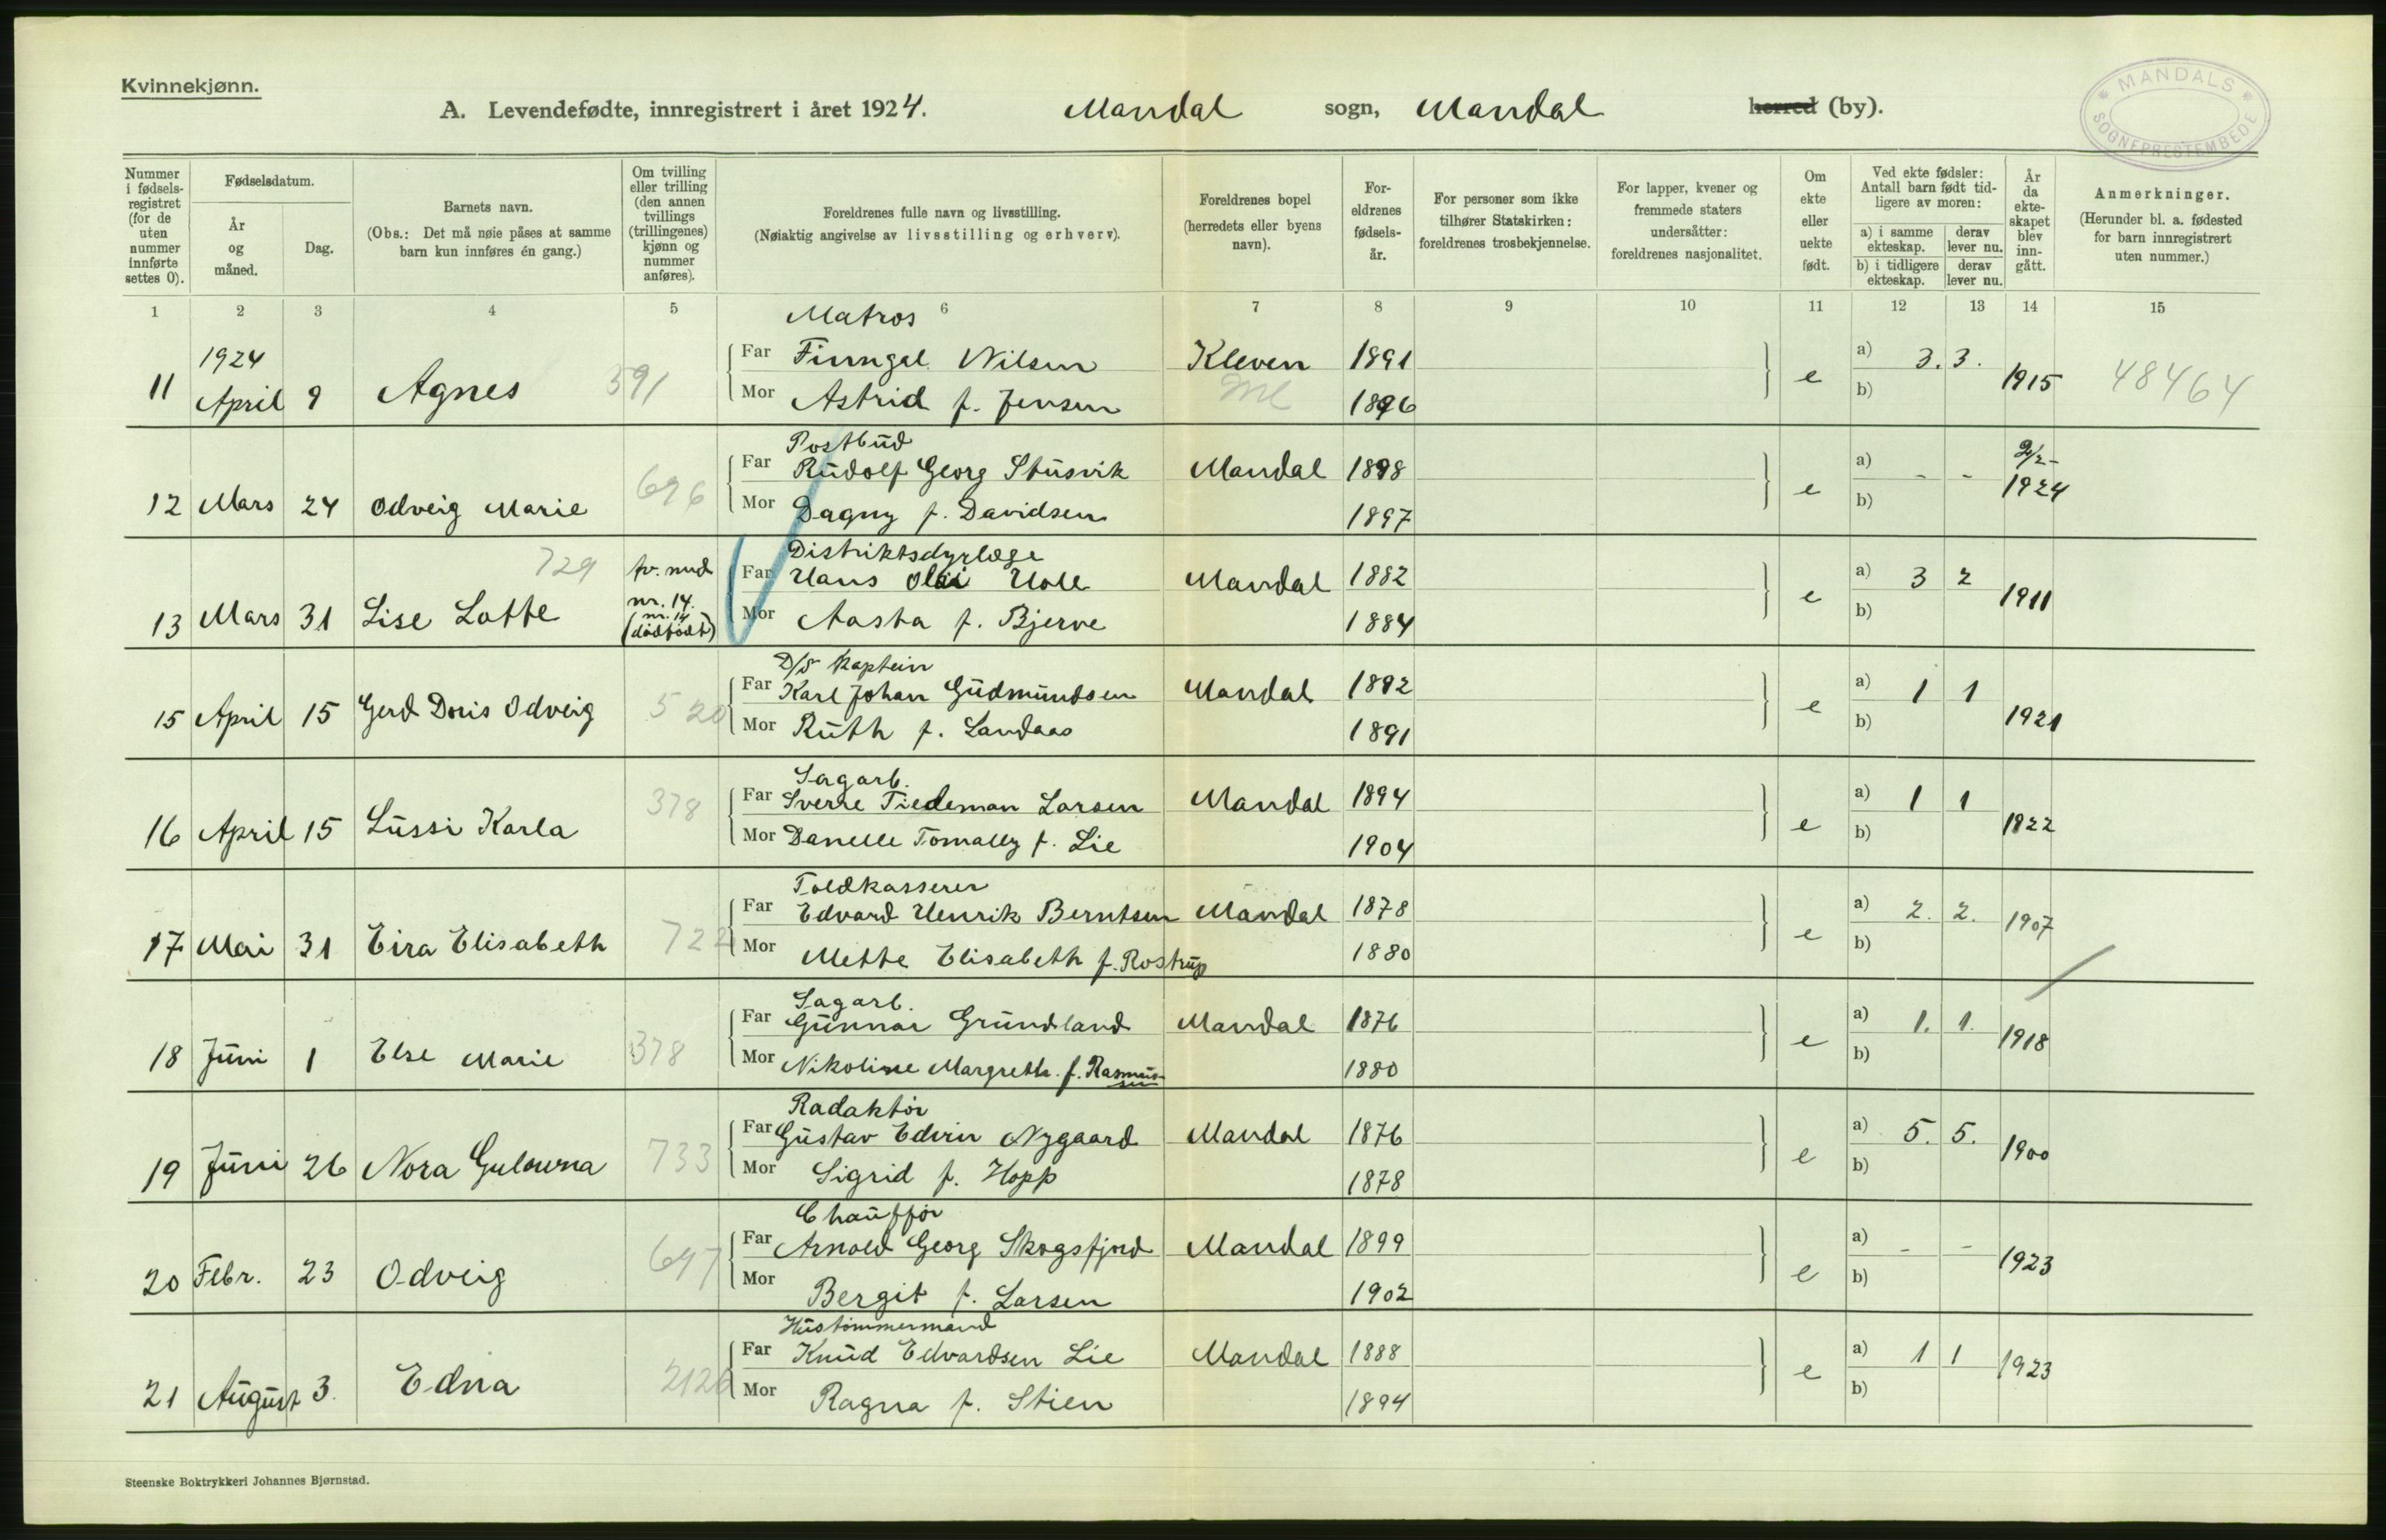 Kvinnekjønn.
A. Levendefødte, innregistrert i året 1924. Mandal sogn, Mandal herred (by).
MANDALS SOGNEPRESTEMBEDE
Nummer i fødsels-registret (for de uten nummer innførte settes 0).
Fødselsdatum.
År og måned.
Dag.
Barnets navn.
(Obs.: Det må nøie påses at samme barn kun innføres én gang.)
Om tvilling eller trilling (den annen tvillings (trillingenes) kjønn og nummer anføres).
Foreldrenes fulle navn og livsstilling.
(Nøiaktig angivelse av livsstilling og erhverv).
Foreldrenes bopel (herredets eller byens navn).
For-eldrenes fødsels-år.
For personer som ikke tilhører Statskirken: foreldrenes trosbekjennelse.
For lapper, kvener og fremmede staters undersåtter: foreldrenes nasjonalitet.
Om ekte eller uekte født.
Ved ekte fødsler: Antall barn født tid-ligere av moren:
a) i samme ekteskap. derav lever nu.
b) i tidligere ekteskap. derav lever nu.
År da ekte-skapet blev inn-gått.
Anmerkninger.
(Herunder bl. a. fødested for barn innregistrert uten nummer.)
1 2 3 4 5 6 7 8 9 10 11 12 13 14 15
Matros
1924 Far Finngal Nilsen Kleven 1891 a) 3. 3.
11 April 9 Agnes 591 Mor Astrid f. Jensen Ml 1896 e b) 1915 48464
Postbud
Far Rudolf Georg Stusvik Mandal 1898 a) - - 2/2-
12 Mars 24 Odveig Marie 696 Mor Dagny f. Davidsen 1897 e b) 1924
Distriktsdyrlæge
729 tv. med Far Hans Olai Holl Mandal 1882 a) 3 2
13 Mars 31 Lise Lotte nr. 14. (nr. 14 dødfødt) Mor Aasta f. Bjerve 1884 e b) 1911
D/S Kaptein
Far Karl Johan Gudmundsen Mandal 1892 a) 1 1
15 April 15 Gerd Doris Odveig 520 Mor Ruth f. Landaas 1891 e b) 1921
Sagarb.
Far Sverre Tiedeman Larsen Mandal 1894 a) 1 1
16 April 15 Lussi Karla 378 Mor Danelle Tomally f. Lie 1904 e b) 1822
Toldkasserer
Far Edvard Henrik Berntsen Mandal 1878 a) 2. 2.
17 Mai 31 Eira Elisabeth 722 Mor Mette Elisabeth f. Rostrup 1880 e b) 1907
Sagarb.
Far Gunnar Grundland Mandal 1876 a) 1. 1.
18 Juni 1 Else Marie 378 Mor Nikoline Margreth. f. Rasmussen 1880 e b) 1918
Radaktør
Far Gustav Edvin Nygaard Mandal 1876 a) 5. 5.
19 Juni 26 Nora Gulowna 733 Mor Sigrid f. Hopp 1878 e b) 1900
Chauffør
Far Arnold Georg Skogsfjord Mandal 1899 a) - -
20 Febr. 23 Odveig 697 Mor Bergit f. Larsen 1902 e b) 1923
Hustømmermand
Far Knud Edvardsen Lie Mandal 1888 a) 1 1
21 August 3. Edna 2126 Mor Ragna f. Stien 1894 e b) 1923
Steenske Boktrykkeri Johannes Bjørnstad.